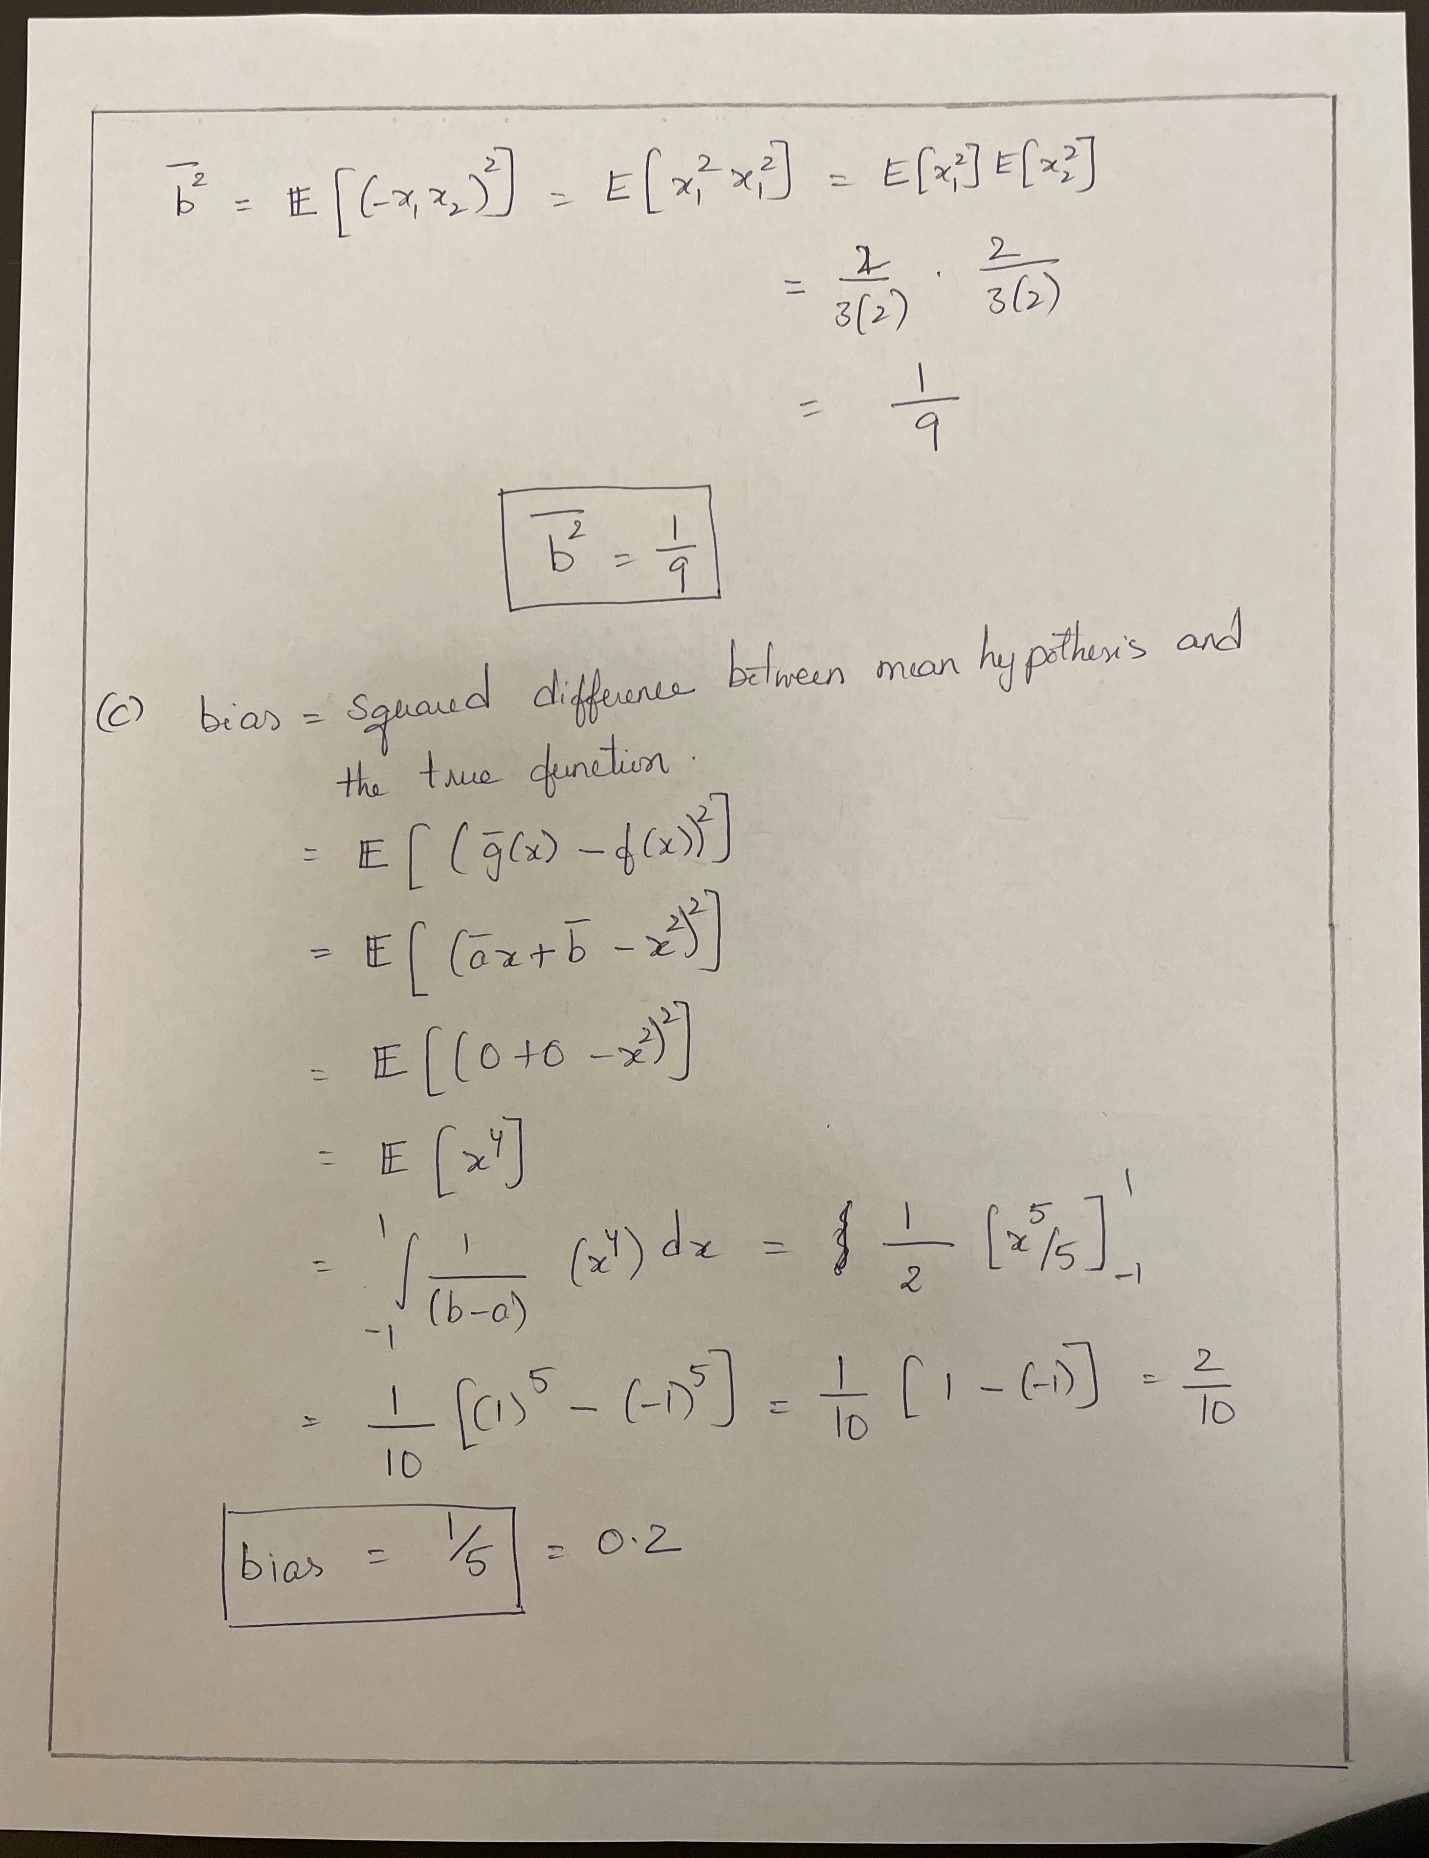 b̅² = 𝔼[(-x₁x₂)²] = E[x₁² x₁²] = E[x₁²] E[x₂²]
= 2/3(2) · 2/3(2)
= 1/9
b̅² = 1/9
(c) bias = squared difference between mean hypothesis and
the true function.
= 𝔼[(g̅(x) - f(x))²]
= 𝔼[(a̅x + b̅ - x²)²]
= 𝔼[(0+0 - x²)²]
= 𝔼[x⁴]
= ∫₋₁¹ 1/(b-a) (x⁴) dx = 1/2 [x⁵/5]₋₁¹
= 1/10 [(1)⁵ - (-1)⁵] = 1/10 [1 - (-1)] = 2/10
bias = 1/5 = 0.2